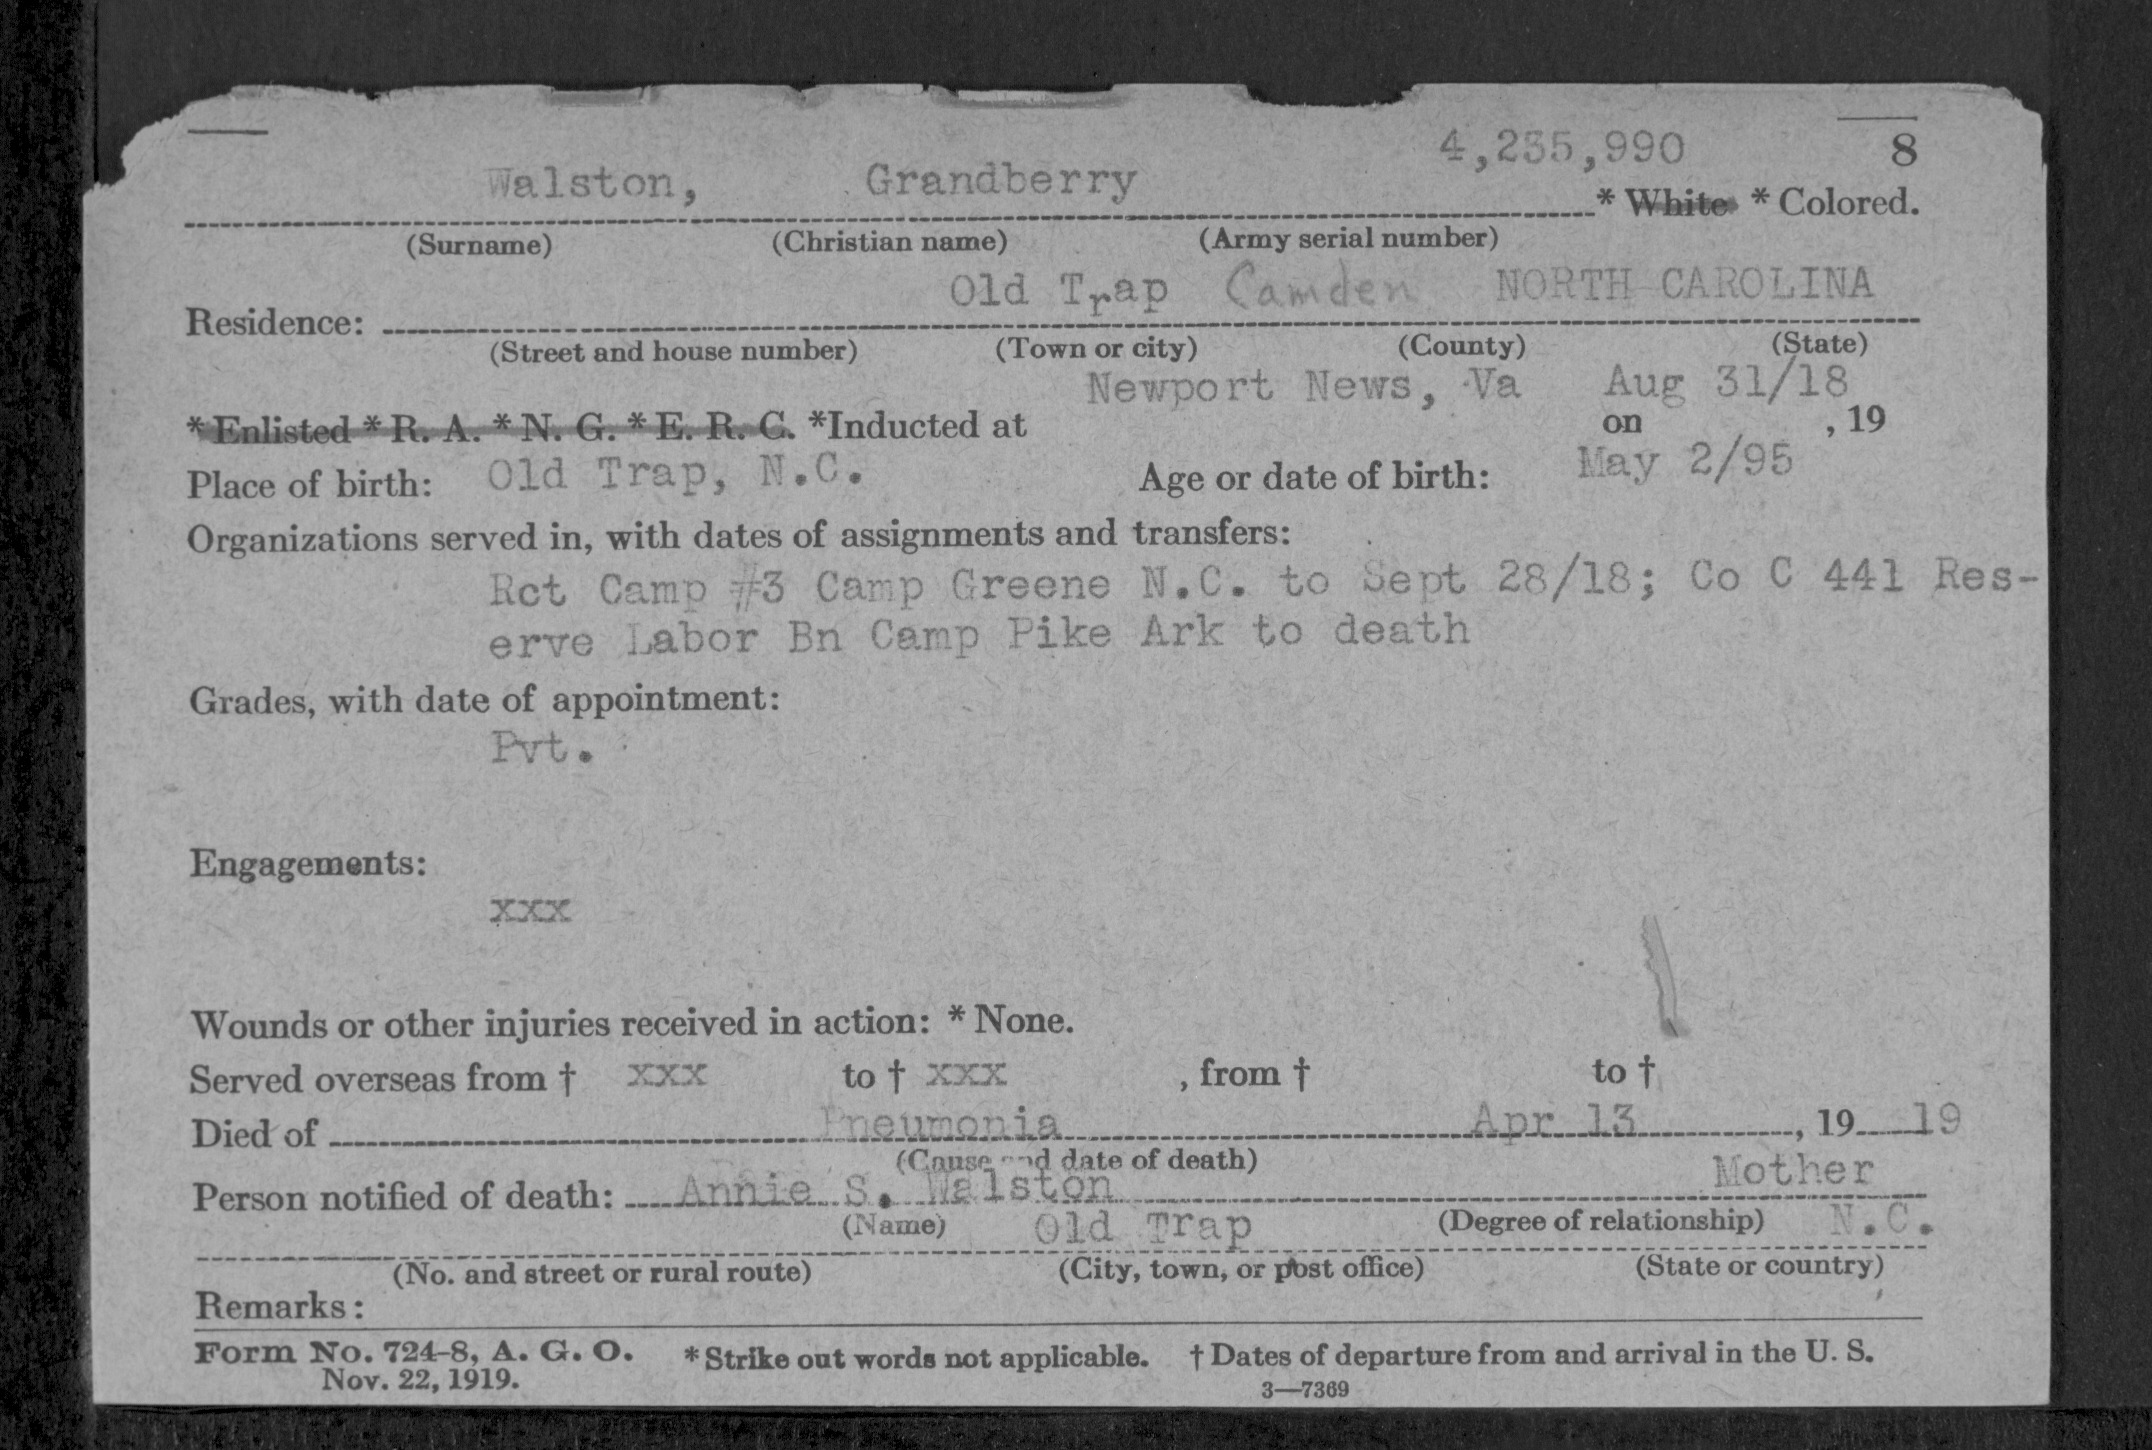 4,235,990 8
Walston, Grandberry * White * Colored.
(Surname) (Christian name) (Army serial number)
Old Trap Camden NORTH CAROLINA
Residence:
(Street and house number) (Town or city) (County) (State)
Newport News, Va Aug 31/18
* Enlisted * R. A. * N. G. * E. R. C. *Inducted at on , 19
Place of birth: Old Trap, N.C. Age or date of birth: May 2/95
Organizations served in, with dates of assignments and transfers:
Rct Camp #3 Camp Greene N.C. to Sept 28/18; Co C 441 Res-
erve Labor Bn Camp Pike Ark to death
Grades, with date of appointment:
Pvt.
Engagements:
xxx
Wounds or other injuries received in action: * None.
Served overseas from † xxx to † xxx , from † to †
Died of Pneumonia Apr 13 , 19 19
(Cause and date of death)
Person notified of death: Annie S. Walston Mother
(Name) (Degree of relationship)
Old Trap N.C.
(No. and street or rural route) (City, town, or post office) (State or country)
Remarks:
Form No. 724-8, A. G. O. * Strike out words not applicable. † Dates of departure from and arrival in the U. S.
Nov. 22, 1919. 3—7369